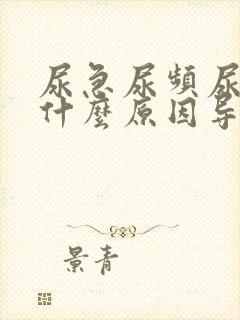 尿急尿频尿
什麼原因导
景青